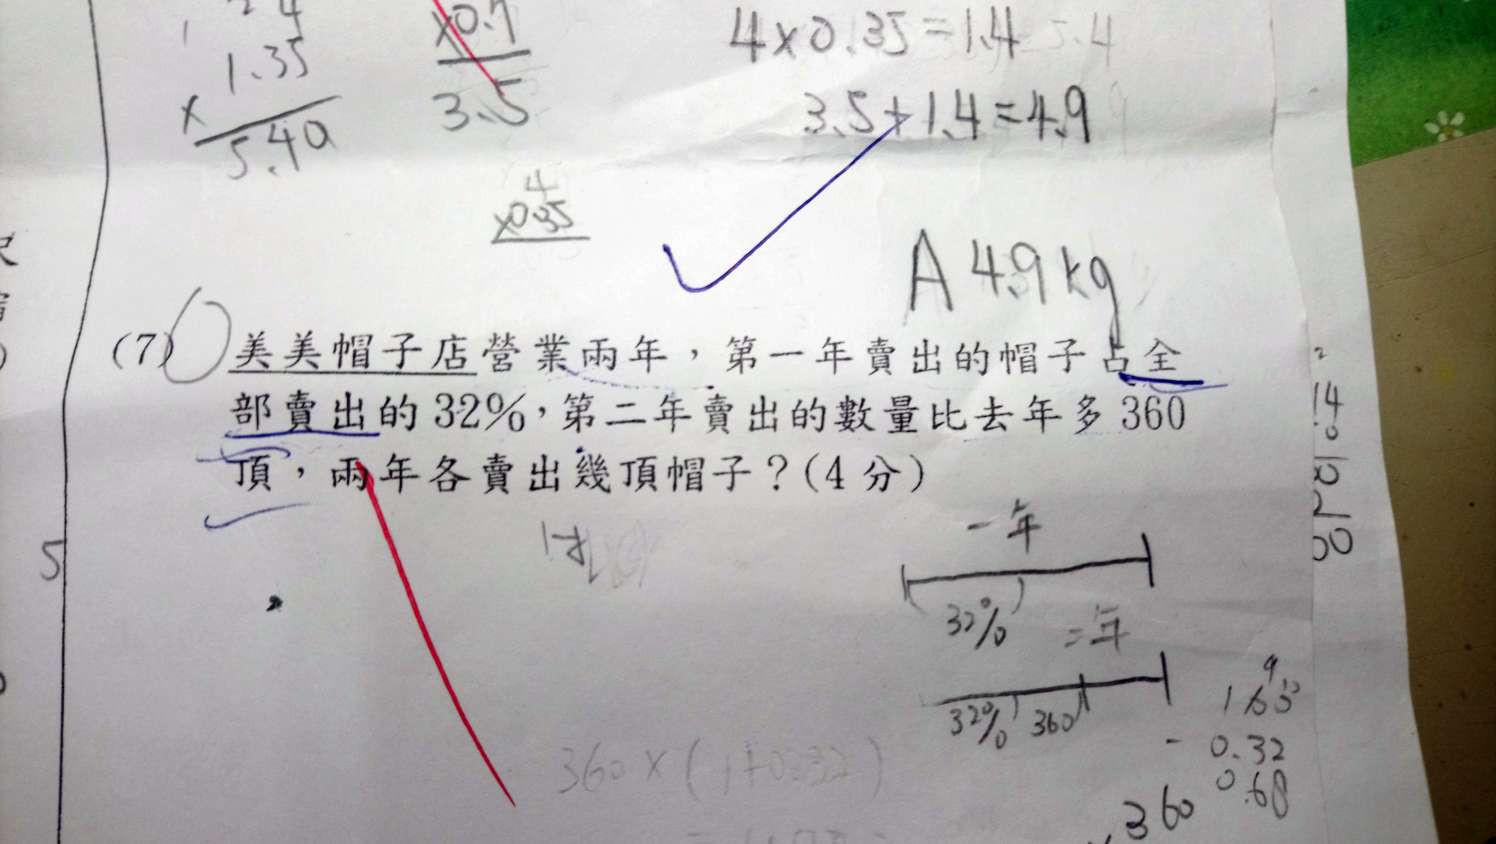 1.35
×
5.40
×0.7
3.5
4×0.35=1.4
3.5+1.4=4.9
4
×0.35
A 4.9kg
(7) 美美帽子店營業兩年,第一年賣出的帽子占全
部賣出的32%,第二年賣出的數量比去年多360
頂,兩年各賣出幾頂帽子?(4分)
5
一年
32%
二年
32% 360
- 0.32
0.68
360×(1+0.32)
360